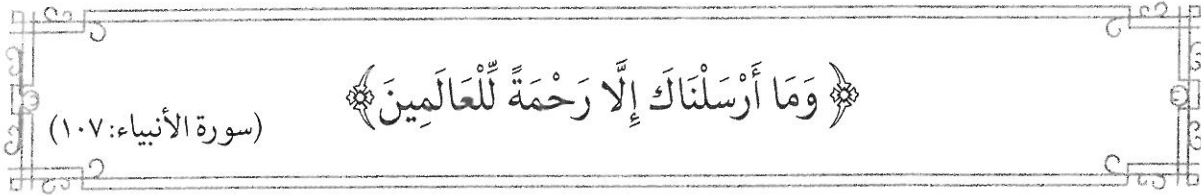 ﴿ وَمَا أَرْسَلْنَاكَ إِلَّا رَحْمَةً لِّلْعَالَمِينَ ﴾
(سورة الأنبياء: ١٠٧)